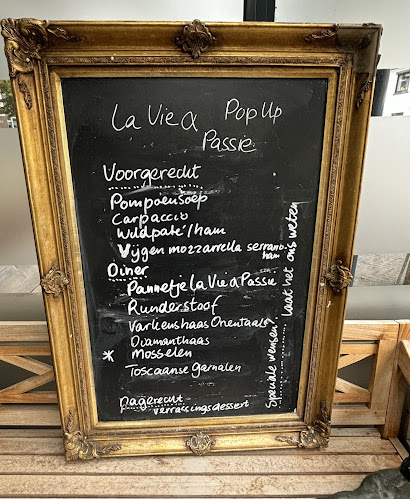 La Vie à Pop Up
Passie
Voorgerecht
Pompoensoep
Carpaccio
Wildpaté/ham
Vijgen mozzarrella serrano-
ham
Diner
Pannetje La Vie a Passie
Runderstoof
Varkenshaas Orientaals
Diamanthaas
* Mosselen
Toscaanse garnalen
Dagerecht
verrassingsdessert
Speciale wensen?
Laat het ons weten